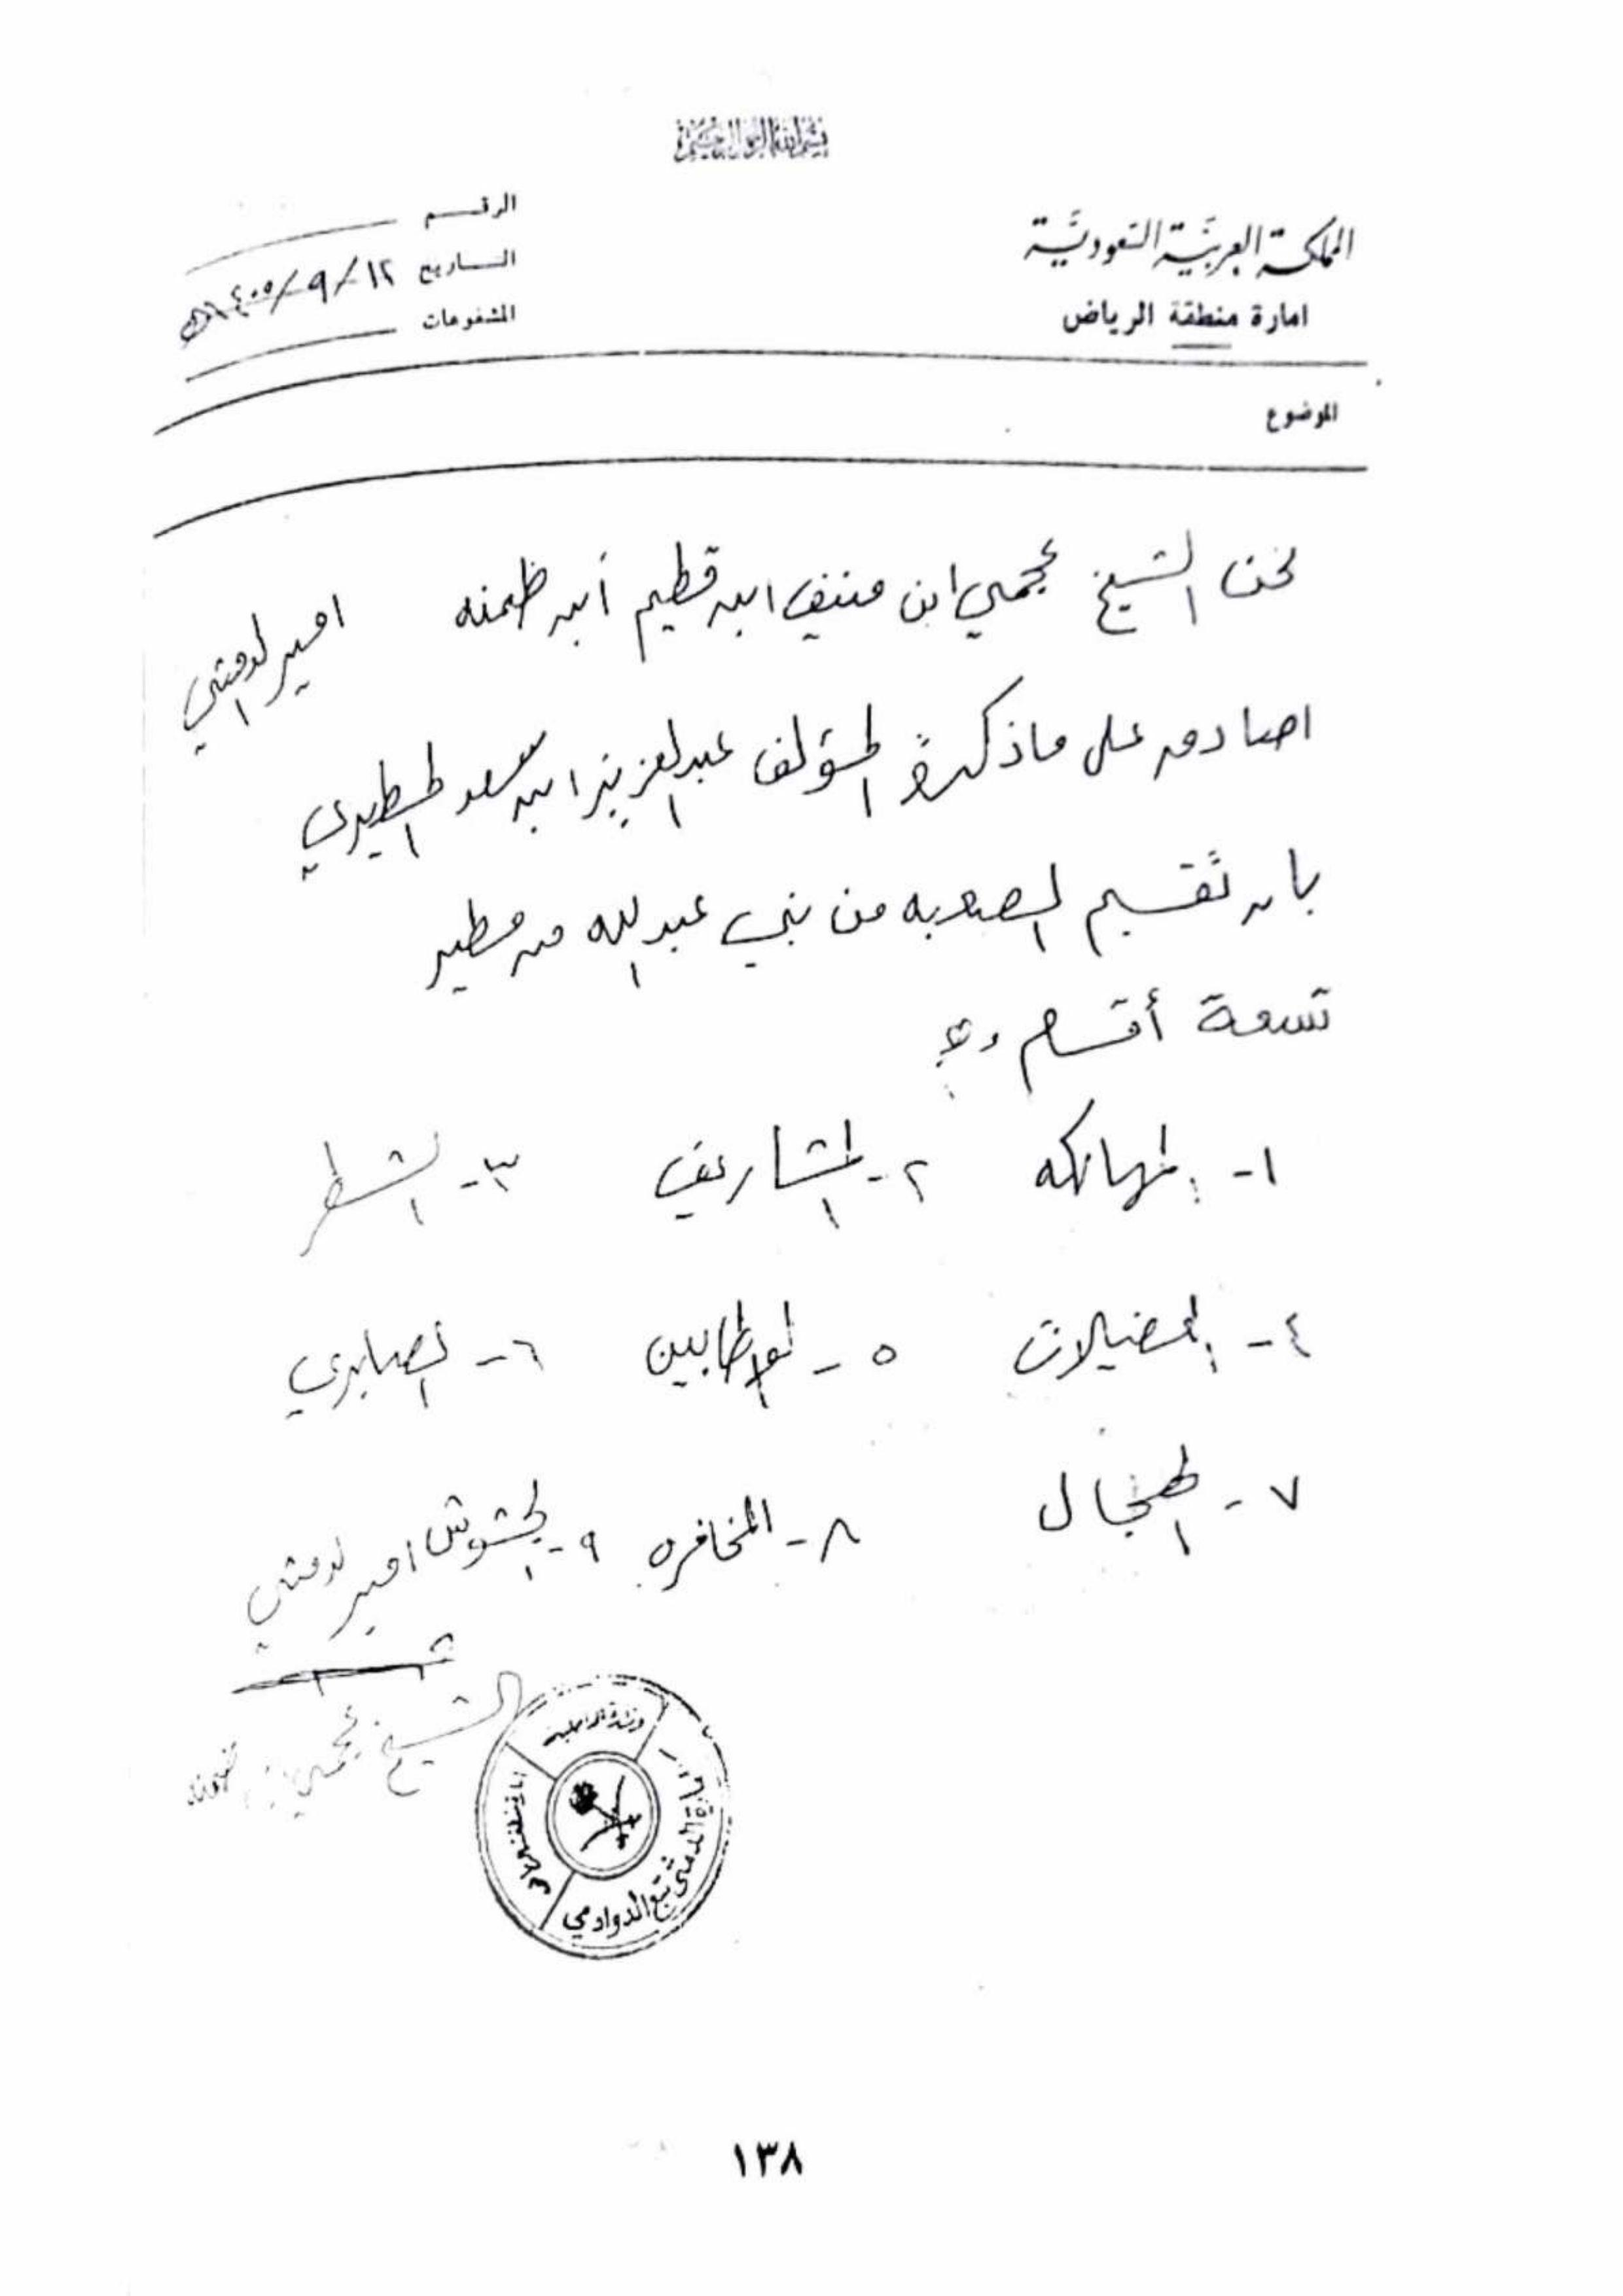 بسم الله الرحمن الرحيم
المملكة العربية السعودية
امارة منطقة الرياض
الرقم
التاريخ ١٢/٩/١٤٠٥هـ
المشفوعات
الموضوع
نحن الشيخ عجمي ابن منيف ابن قطيم أبن ظمنه امير الارمثي
اصادق على ماذكره المؤلف عبدالعزيز ابن سعد المطيري
بان تقسيم الصعبه من بني عبدالله من مطير
تسعة أقسام وهي
١- المهالكه ٢- المشاريف ٣- الشطر
٤- العضيلات ٥- العطابين ٦- الصابري
٧- الهجال ٨- المخافره ٩- الحشوش امير
الشيخ عجمي
وزارة الداخلية
تبع الدوادمي
١٣٨